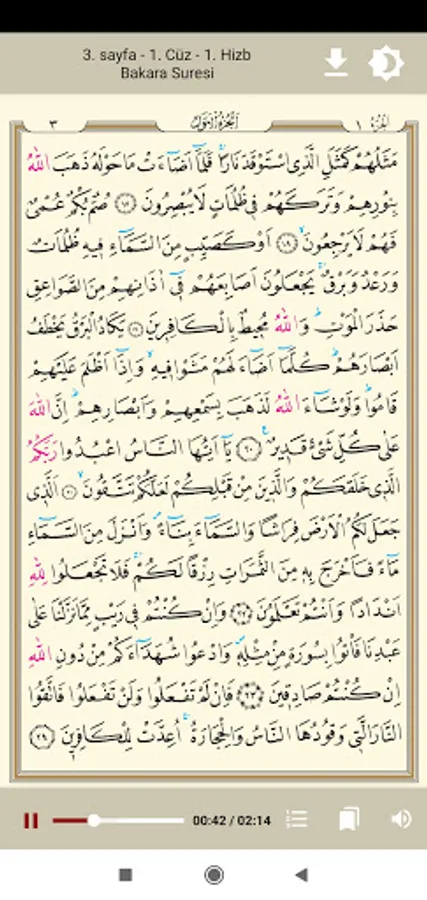 3. sayfa - 1. Cüz - 1. Hizb
Bakara Suresi
٣ اَلْجُزْءُ الْاَوَّلُ الْجُزْءُ ١
مَثَلُهُمْ كَمَثَلِ الَّذِى اسْتَوْقَدَ نَارًا فَلَمَّا اَضَاءَتْ مَا حَوْلَهُ ذَهَبَ اللّٰهُ
بِنُورِهِمْ وَتَرَكَهُمْ فِى ظُلُمَاتٍ لَا يُبْصِرُونَ ﴿١٧﴾ صُمٌّ بُكْمٌ عُمْىٌ
فَهُمْ لَا يَرْجِعُونَ ﴿١٨﴾ اَوْ كَصَيِّبٍ مِنَ السَّمَاءِ فِيهِ ظُلُمَاتٌ
وَرَعْدٌ وَبَرْقٌ يَجْعَلُونَ اَصَابِعَهُمْ فِى اٰذَانِهِمْ مِنَ الصَّوَاعِقِ
حَذَرَ الْمَوْتِ وَاللّٰهُ مُحِيطٌ بِالْكَافِرِينَ ﴿١٩﴾ يَكَادُ الْبَرْقُ يَخْطَفُ
اَبْصَارَهُمْ كُلَّمَا اَضَاءَ لَهُمْ مَشَوْا فِيهِ وَاِذَا اَظْلَمَ عَلَيْهِمْ
قَامُوا وَلَوْ شَاءَ اللّٰهُ لَذَهَبَ بِسَمْعِهِمْ وَاَبْصَارِهِمْ اِنَّ اللّٰهَ
عَلٰى كُلِّ شَىْءٍ قَدِيرٌ ﴿٢٠﴾ يَا اَيُّهَا النَّاسُ اعْبُدُوا رَبَّكُمُ
الَّذِى خَلَقَكُمْ وَالَّذِينَ مِنْ قَبْلِكُمْ لَعَلَّكُمْ تَتَّقُونَ ﴿٢١﴾ اَلَّذِى
جَعَلَ لَكُمُ الْاَرْضَ فِرَاشًا وَالسَّمَاءَ بِنَاءً وَاَنْزَلَ مِنَ السَّمَاءِ
مَاءً فَاَخْرَجَ بِهِ مِنَ الثَّمَرَاتِ رِزْقًا لَكُمْ فَلَا تَجْعَلُوا لِلّٰهِ
اَنْدَادًا وَاَنْتُمْ تَعْلَمُونَ ﴿٢٢﴾ وَاِنْ كُنْتُمْ فِى رَيْبٍ مِمَّا نَزَّلْنَا عَلٰى
عَبْدِنَا فَاْتُوا بِسُورَةٍ مِنْ مِثْلِهِ وَادْعُوا شُهَدَاءَكُمْ مِنْ دُونِ اللّٰهِ
اِنْ كُنْتُمْ صَادِقِينَ ﴿٢٣﴾ فَاِنْ لَمْ تَفْعَلُوا وَلَنْ تَفْعَلُوا فَاتَّقُوا
النَّارَ الَّتِى وَقُودُهَا النَّاسُ وَالْحِجَارَةُ اُعِدَّتْ لِلْكَافِرِينَ ﴿٢٤﴾
00:42 / 02:14